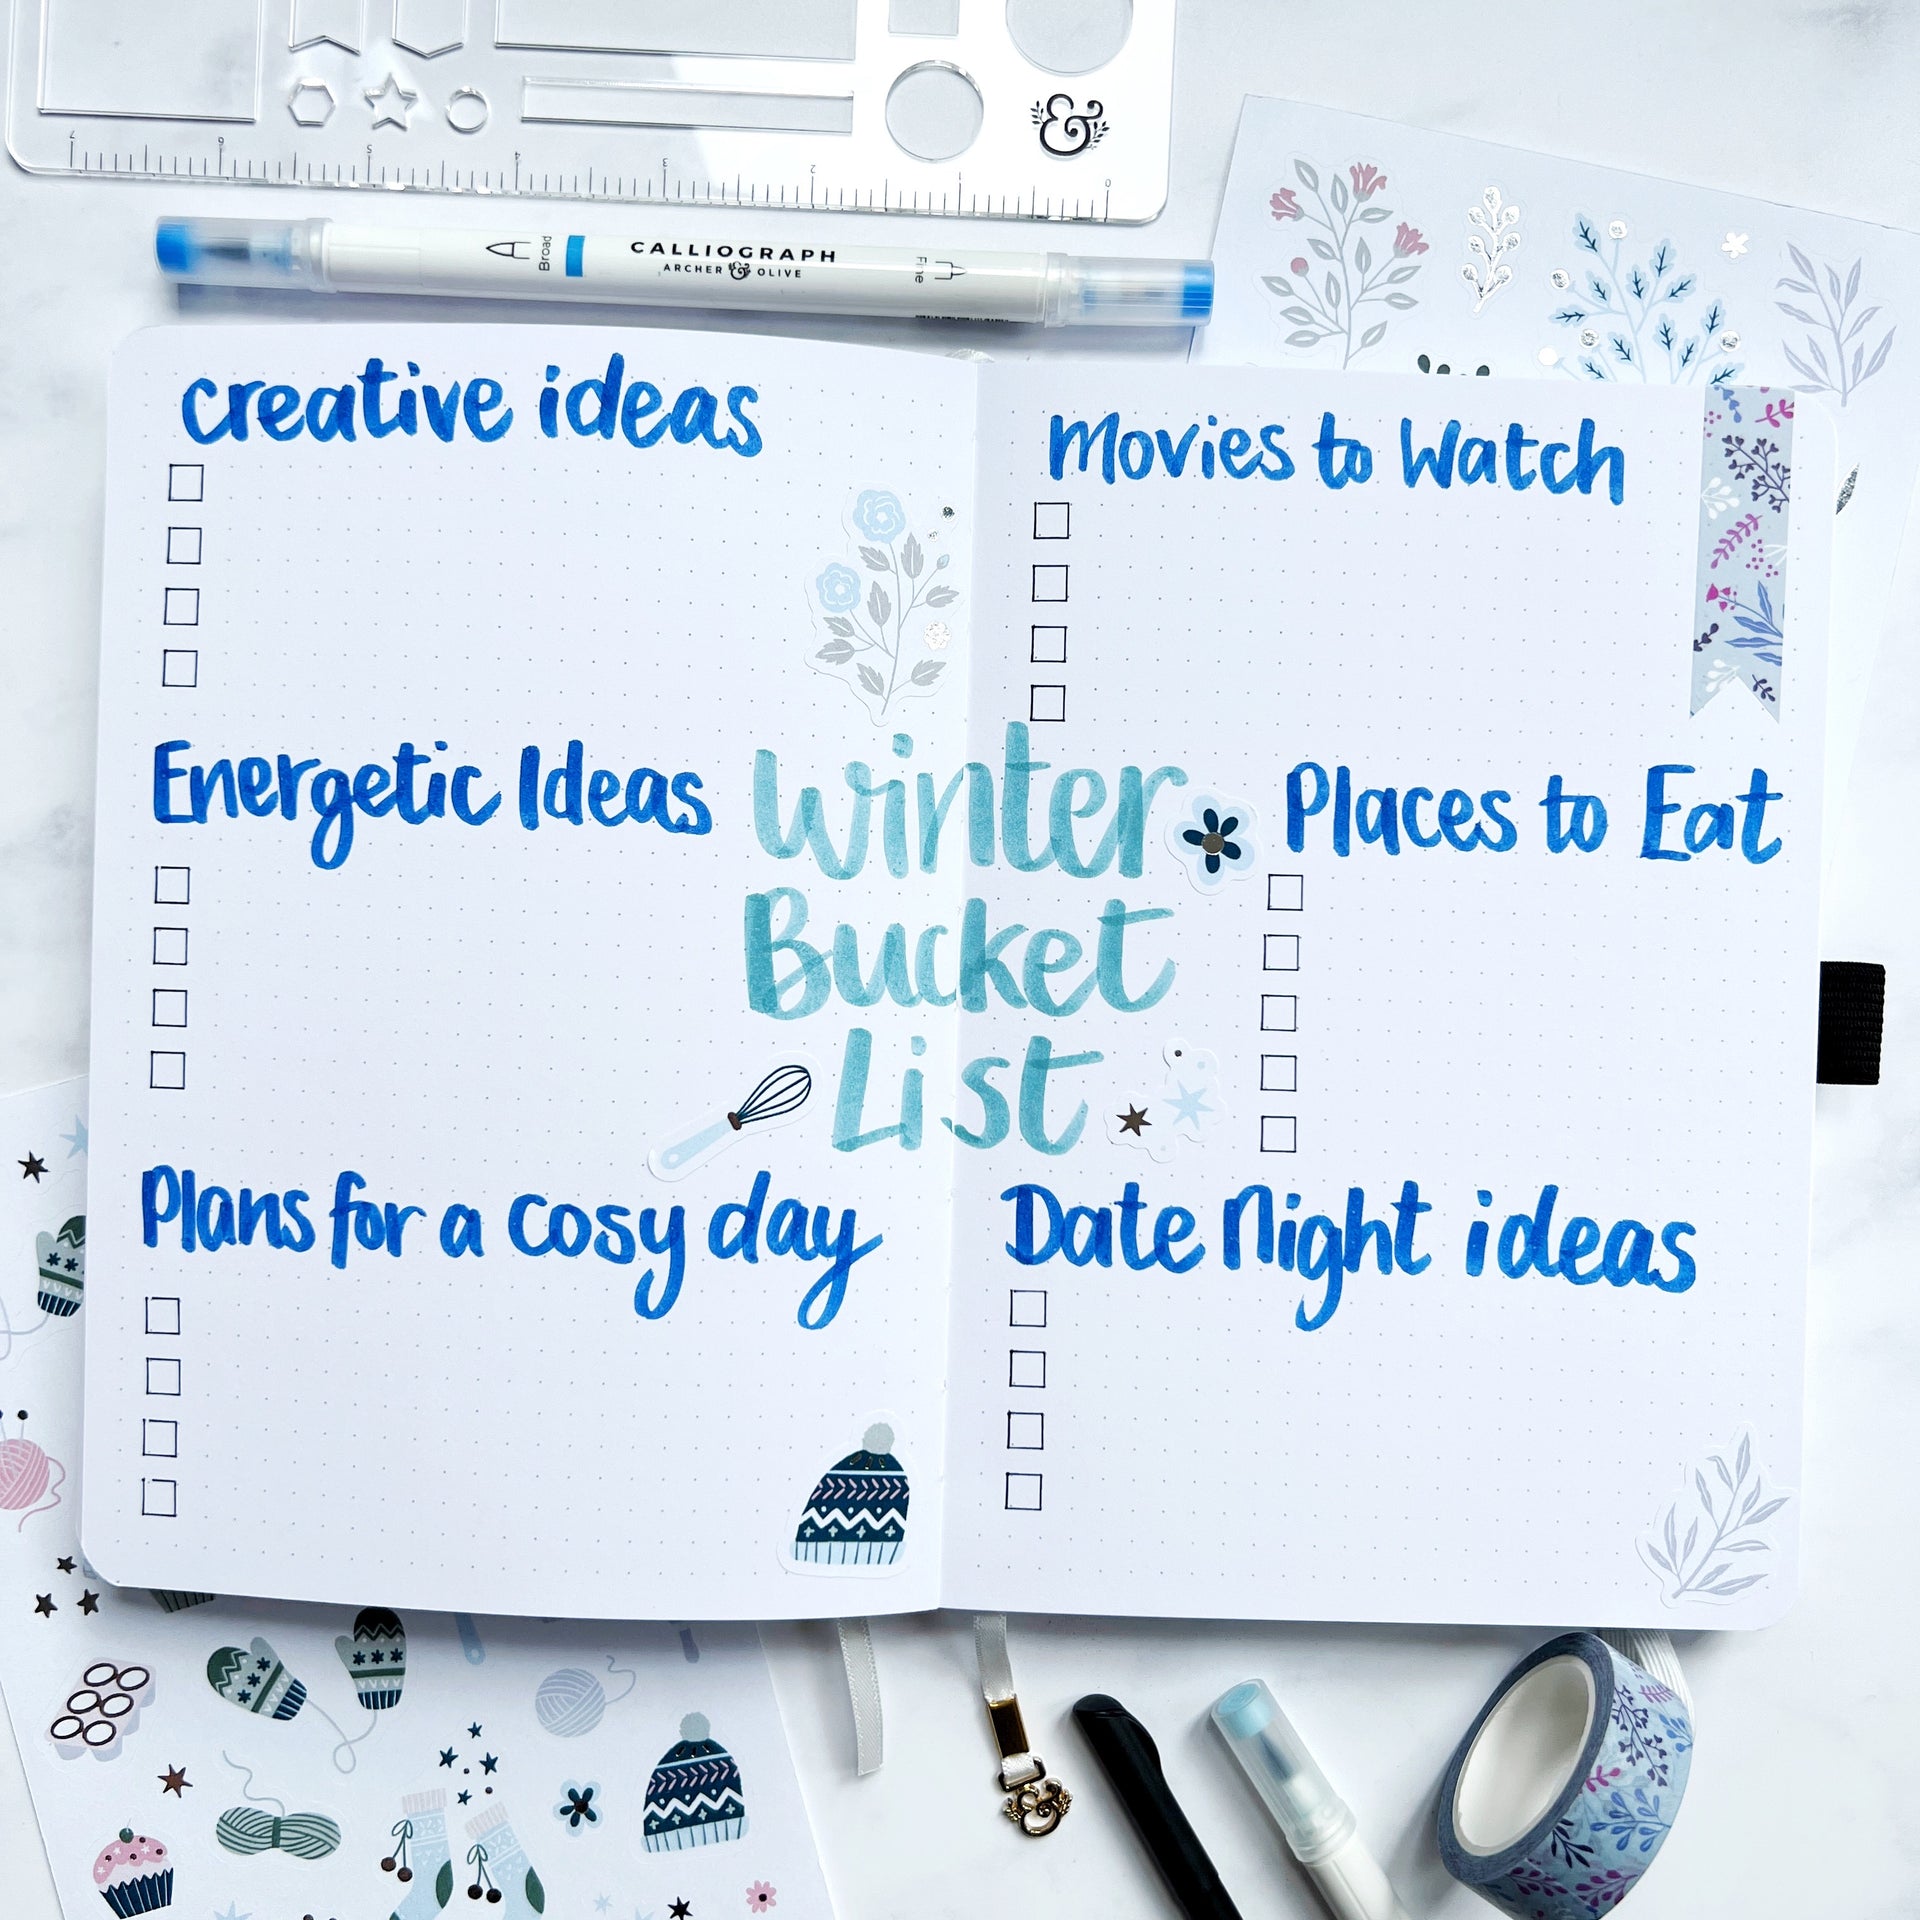 7 6 5 4 3 2 1 0
&
Broad
CALLIOGRAPH
ARCHER & OLIVE
Fine
creative ideas
Energetic Ideas
Plans for a cosy day
Winter
Bucket
List
Movies to Watch
Places to Eat
Date Night ideas